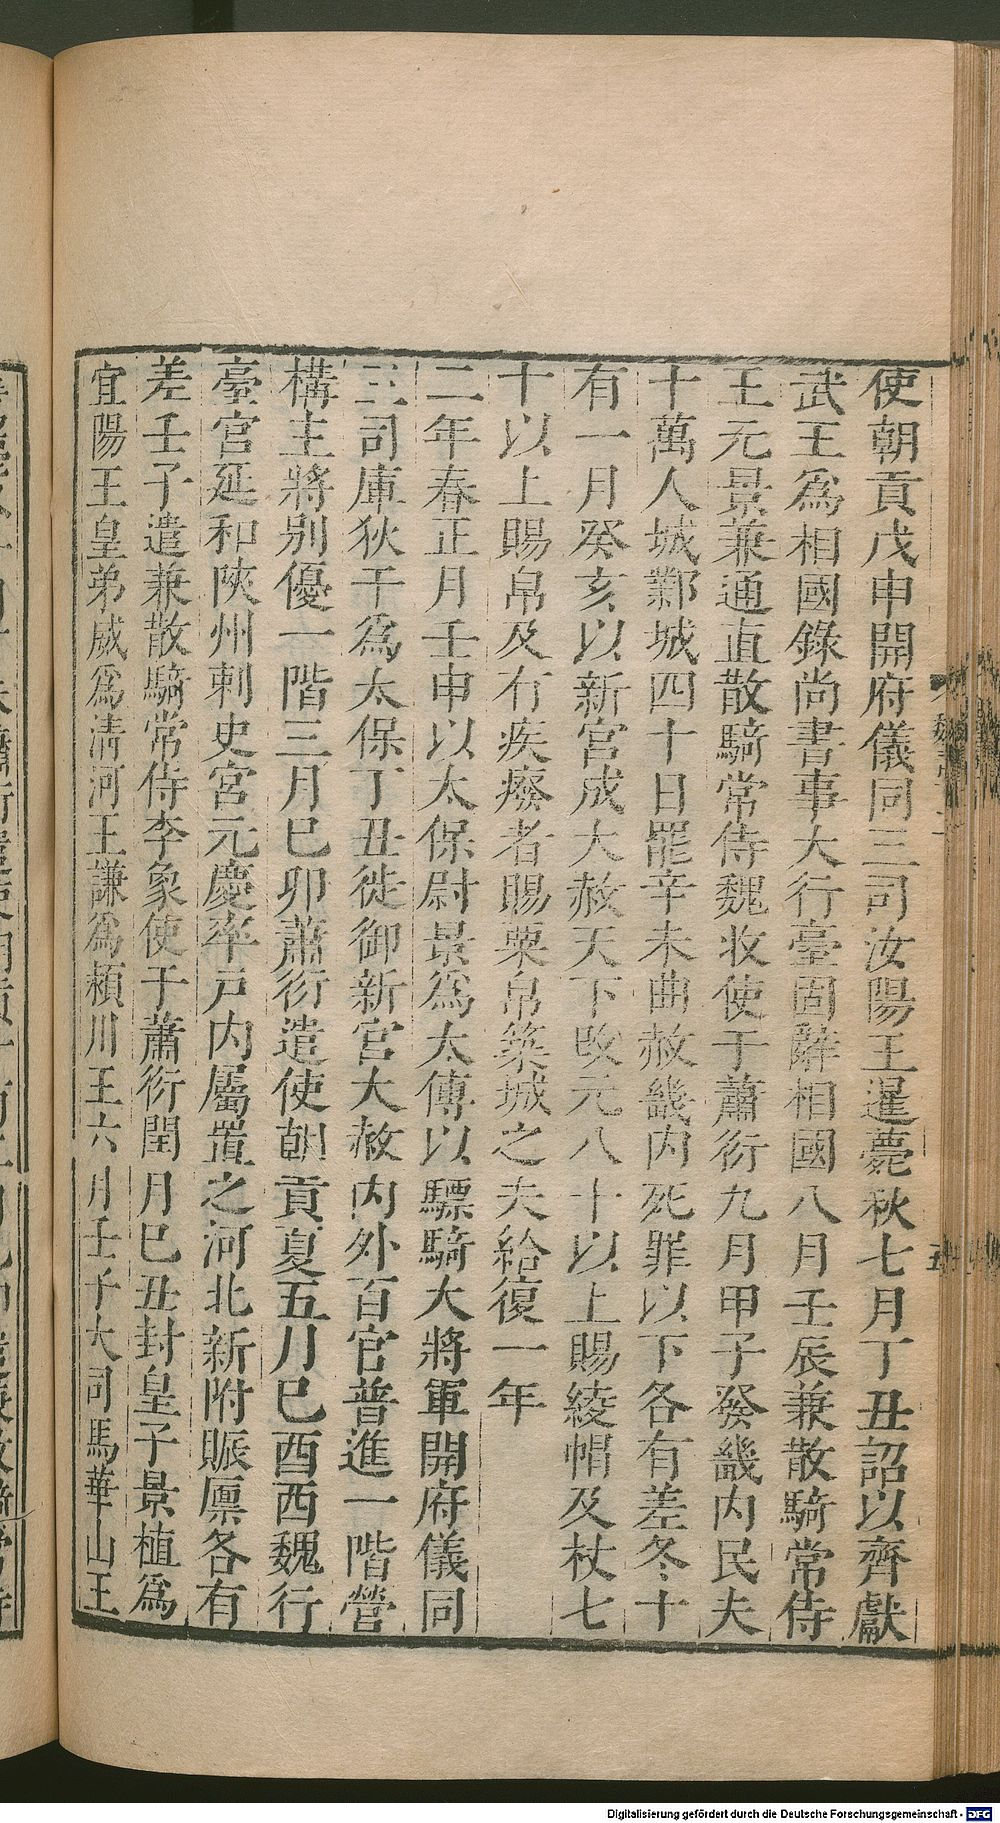 使朝貢戊申開府儀同三司汝陽王暹薨秋七月丁丑詔以齊獻
武王爲相國錄尚書事大行臺固辭相國八月壬辰兼散騎常侍
王元景兼通直散騎常侍魏收使于蕭衍九月甲子發畿内民夫
十萬人城鄴城四十日罷辛未曲赦畿内死罪以下各有差冬十
有一月癸亥以新宮成大赦天下改元八十以上賜綾帽及杖七
十以上賜帛及有疾癈者賜粟帛築城之夫給復一年
二年春正月壬申以太保尉景爲太傅以驃騎大將軍開府儀同
三司庫狄干爲太保丁丑徙御新宮大赦内外百官普進一階營
構主將別優一階三月巳卯蕭衍遣使朝貢夏五月巳酉西魏行
臺宮延和陝州刺史宮元慶率戶内屬置之河北新附賑廪各有
差壬子遣兼散騎常侍李象使于蕭衍閏月巳丑封皇子景植爲
宜陽王皇弟威爲清河王謙爲潁川王六月壬子大司馬華山王
Digitalisierung gefördert durch die Deutsche Forschungsgemeinschaft - DFG